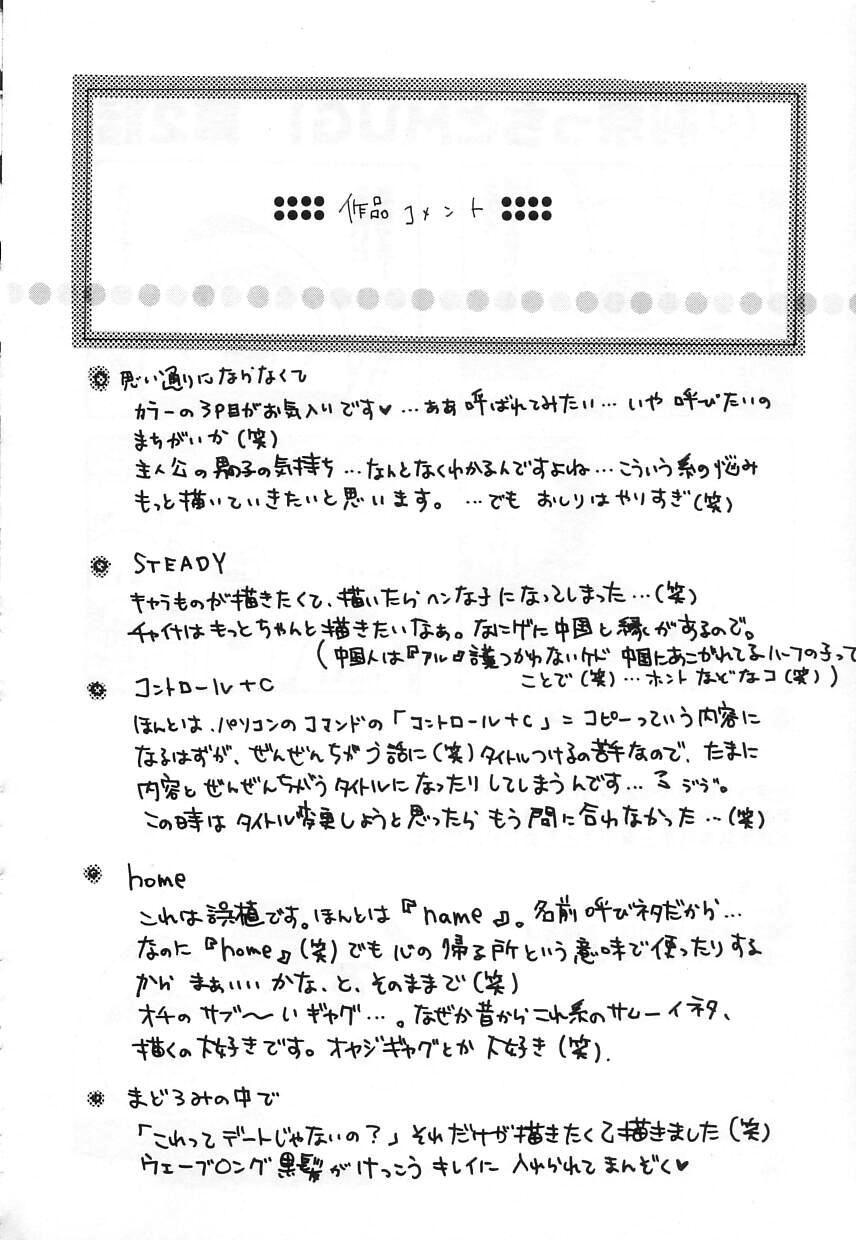 作品コメント
思い通りにならなくて
カラーの3P目がお気入りです♥…ああ 呼ばれてみたい…いや 呼びたいの
まちがいか(笑)
主人公の男の子の気持ち…なんとなくわかるんですよね…こういう系の悩み
もっと描いていきたいと思います。…でも おしりはやりすぎ(笑)
STEADY
キャラものが描きたくて、描いたらヘンな子になってしまった…(笑)
チャイナはもっとちゃんと描きたいなぁ。なにげに中国と縁があるので。
(中国人は『アル』語つかわないケド 中国にあこがれてるハーフの子って
ことで(笑)…ホントなどなコ(笑))
コントロール+C
ほんとは、パソコンのコマンドの「コントロール+C」=コピーっていう内容に
なるはずが、ぜんぜんちがう話に(笑)タイトルつけるの苦手なので、たまに
内容とぜんぜんちがうタイトルになったりしてしまうんです…
この時は タイトル変更しようと思ったら もう間に合わなかった…(笑)
home
これは誤植です。ほんとは『name』。名前呼びネタだから…
なのに『home』(笑)でも 心の帰る所という意味で使ったりする
から まぁいいかな、と、そのままで(笑)
オチの サブ〜いギャグ…。なぜか昔からこれ系のサムーイネタ、
描くの大好きです。オヤジギャグとか大好き(笑).
まどろみの中で
「これってデートじゃないの?」それだけが描きたくて描きました(笑)
ウェーブロング黒髪がけっこうキレイに 入れられて まんぞく♥